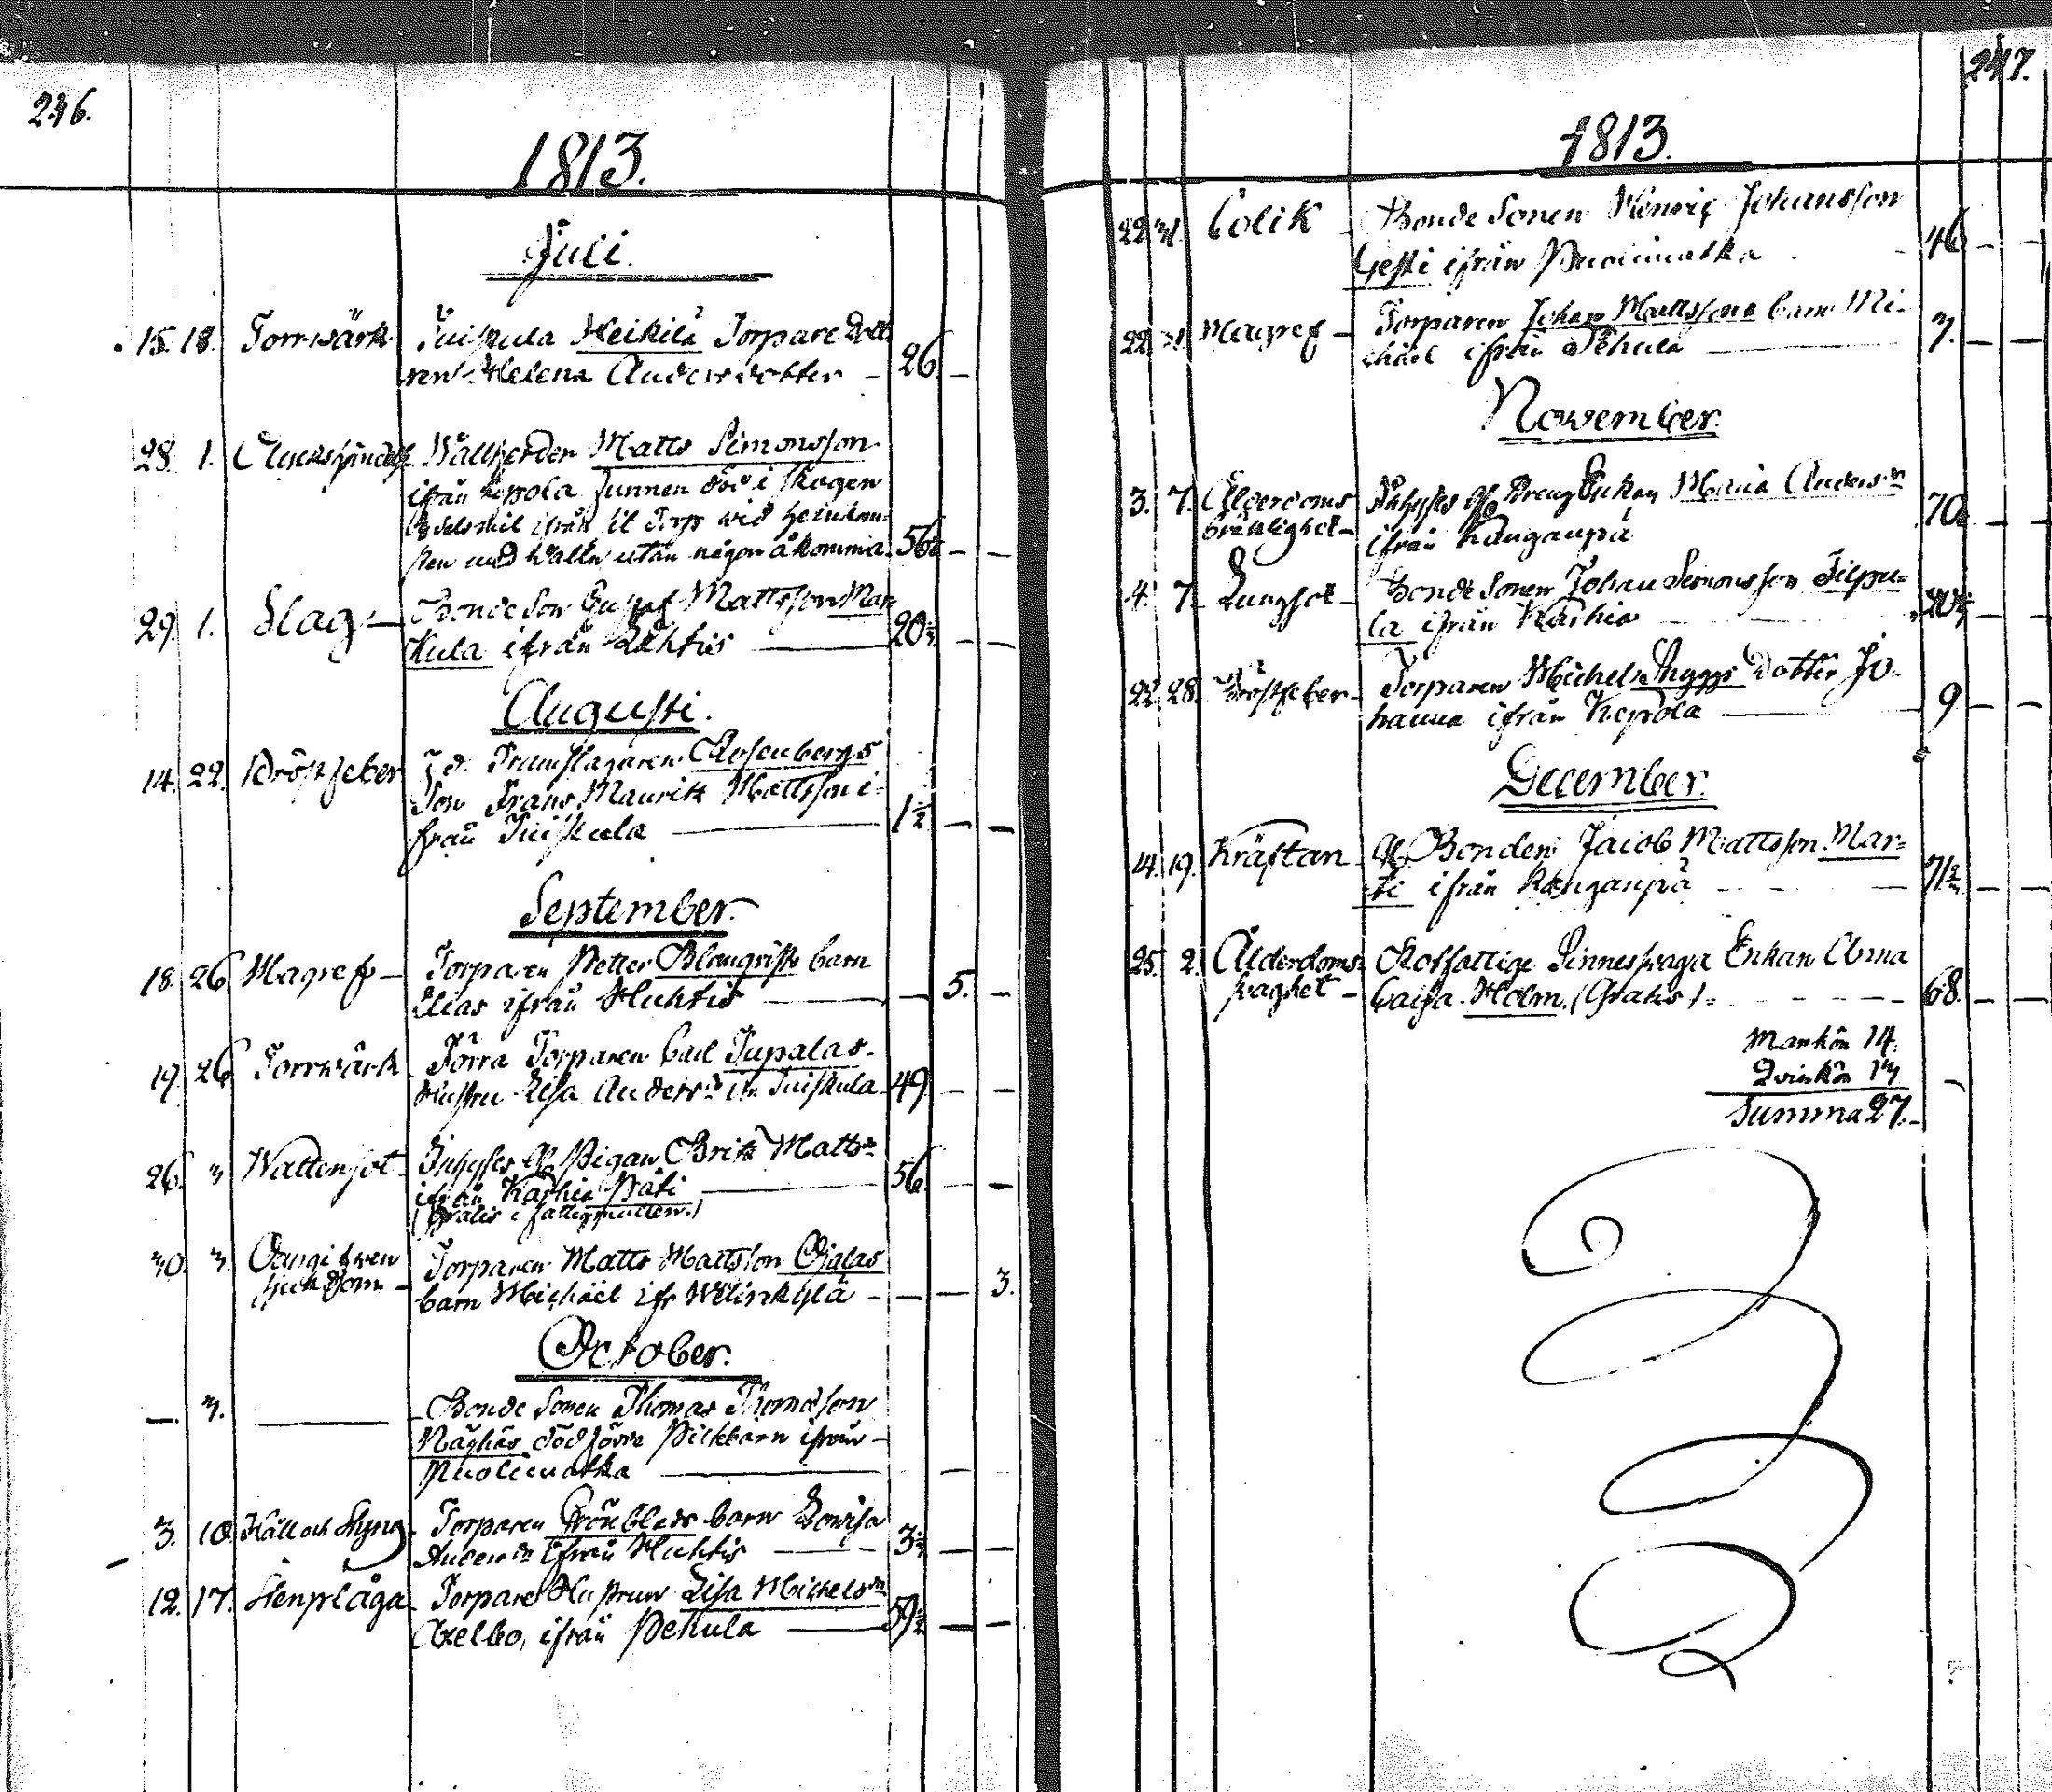 246.
1813.
Juli.
15. 18. Torrwärk Tuiskula Heikilä Torpare Dott
ren Helena Andersdotter - 26. -
28. 1. Matts Simonsson
ifrån Kepola funnen död i skogen
ifrån sit Torp wid
med utan någon åkomma. 56 - -
29. 1. Slag - Bonde Son Gustaf Mattsson Mar-
kula ifrån Lähtis - 20 - -
Augusti.
14. 22. Bröstfeber Rosenbergs
Son Frans Maurits Mattsson i-
från Tuiskula - 1 1/2 - -
September.
18. 26 Magref - Torparen Petter Blomqvists barn
Elias ifrån Huhtis - - 5. -
19. 26 Torrwärk Förra Torparen Carl Tupalas
Hustru Lisa Anders dr ifr Tuiskula 49. - -
26. 3 Wattensot Inhyses G. Pigan Brita Matts dr
ifrån Karhia Pati - 56. - -
(Gratis i fattigmullen.)
30. 3. Torparen Matts Mattsson Ojalas
sjukdom - barn Michäel ifr Wiliskylä - - - 3.
October.
-. 3. - Bonde Sonen Thomas Thomasson
Näghäs dödfödde Pilkbarn ifrån
Puolimatka - - -
3. 10. Håll och Styng Torparen Grönblads barn Lowisa
Anders dr ifrån Huhtis - 3 - -
12. 17. Stenplåga Torpare Hustrun Lisa Michels dr
Axelbo, ifrån Pehula - 59 1/2 - -
247.
1813.
22 31. Colik - Bonde Sonen Henric Johansson
Yeski ifrån Puolimatka - 46 - -
22. 31. Magref - Torparen Johan Mattssons barn Mi-
chäel ifrån Pehula - 7. - -
November.
3. 7. Ålderdoms Inhyses Enkan Maria Anders dr
bräcklighet - ifrån Kangaupä 70. - -
4. 7. Lungsot - Bonde Sonen Johan Simonsson Filpu-
la ifrån Karhia - - -
22. 28. Bröstfeber - Torparen Michels Snyggs Dotter Jo-
hanna ifrån Kepola - 9. - -
December.
14. 19. Kräftan G. Bonden Jacob Mattsson Mar-
ti ifrån Kangaupä - 71 - -
25. 2. Ålderdoms- Rotfattige Sinnessvaga Enkan Anna
svaghet - Caisa Holm. (Gratis) - 68. - -
Mankön 14.
Qvinkön 13
Summa 27.